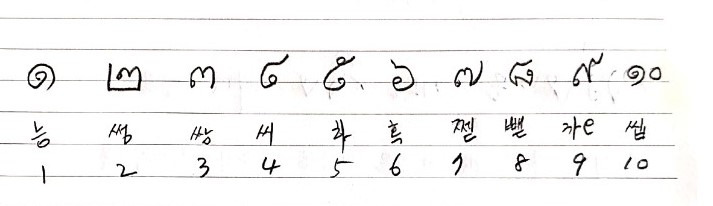 ๑ ๒ ๓ ๔ ๕ ๖ ๗ ๘ ๙ ๑๐
능 썽 쌍 씨 하 혹 쩯 뺻 까e 씹
1 2 3 4 5 6 7 8 9 10